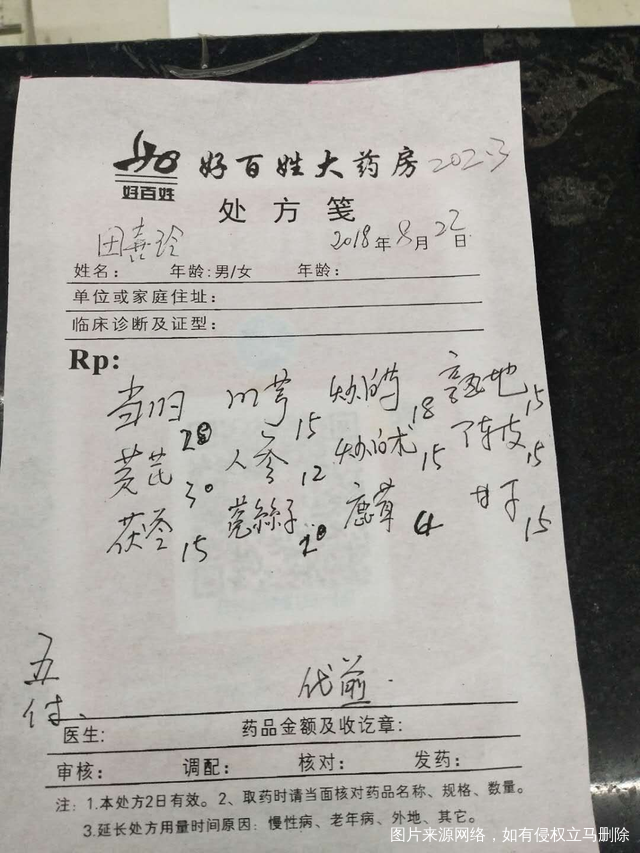 好百姓 好百姓大药房 202.3
处方笺
田喜玲 2018年8月22日
姓名： 年龄:男/女 年龄：
单位或家庭住址：
临床诊断及证型：
Rp:
当归20 川芎15 炒白芍18 熟地15
黄芪30 人参12 炒白术15 陈皮15
茯苓15 菟絲子20 鹿茸4 甘草15
五付、 代煎.
医生: 药品金额及收讫章:
审核： 调配： 核对： 发药：
注：1.本处方2日有效。2、取药时请当面核对药品名称、规格、数量。
3.延长处方用量时间原因：慢性病、老年病、外地、其它。
图片来源网络，如有侵权立马删除